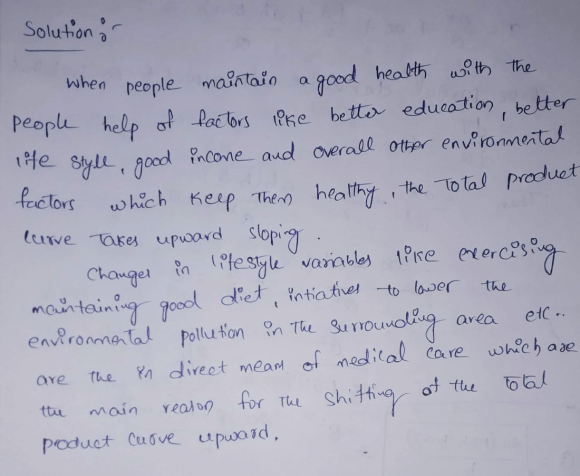 Solution :-
When people maintain a good health with the
people help of factors like better education, better
life style, good income and overall other environmental
factors which keep them healthy, the Total product
curve Takes upward sloping.
Changes in lifestyle variables like exercising
maintaining good diet, intiatives to lower the
environmental pollution in The surrounding area etc..
are the in direct means of medical care which are
the main reason for the shifting of the total
product curve upward.